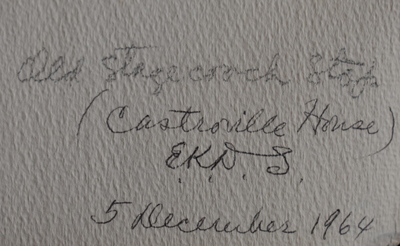 Old Stagecoach Stop
(Castroville House)
E.K.D.S.
5 December 1964